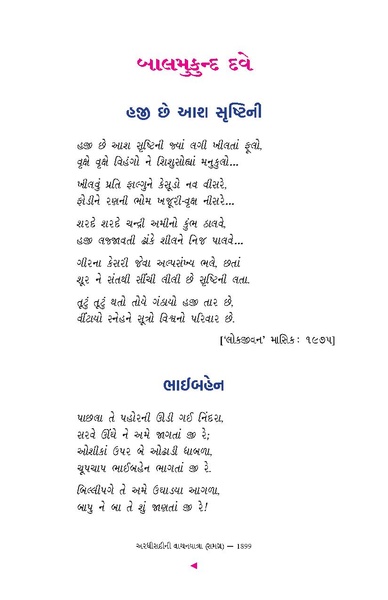 બાલમુકુન્દ દવે
હજી છે આશ સૃષ્ટિની
હજી છે આશ સૃષ્ટિની જ્યાં લગી ખીલતાં ફૂલો,
વૃક્ષે વૃક્ષે વિહંગો ને શિશુસોહ્યાં મનુકુલો…
ખીલવું પ્રતિ ફાલ્ગુને કેસૂડો નવ વીસરે,
ફોડીને રણની ભોમ ખજૂરી-વૃક્ષ નીસરે…
શરદે શરદે ચન્દ્રી અમીનો કુંભ ઠાલવે,
હજી લજ્જાવતી ઢાંકે શીલને નિજ પાલવે…
ગીરના કેસરી જેવા અલ્પસંખ્ય ભલે, છતાં
શૂર ને સંતથી સીંચી લીલી છે સૃષ્ટિની લતા.
તૂટું તૂટું થતો તોયે ગંઠાયો હજી તાર છે.
વીંટાયો સ્નેહને સૂત્રો વિશ્વનો પરિવાર છે.
['લોકજીવન' માસિક: ૧૯૭૫]
ભાઈબહેન
પાછલા તે પહોરની ઊડી ગઈ નિંદરા,
સરવે ઊંઘે ને અમે જાગતાં જી રે;
ઓશીકાં ઉપર બે ઓઢાડી ધાબળા,
ચૂપચાપ ભાઈબહેન ભાગતાં જી રે.
બિલ્લીપગે તે અમે ઉઘાડ્યા આગળા,
બાપુ ને બા તે શું જાણતાં જી રે!
અરધીસદીની વાચનયાત્રા (સમગ્ર) — 1899